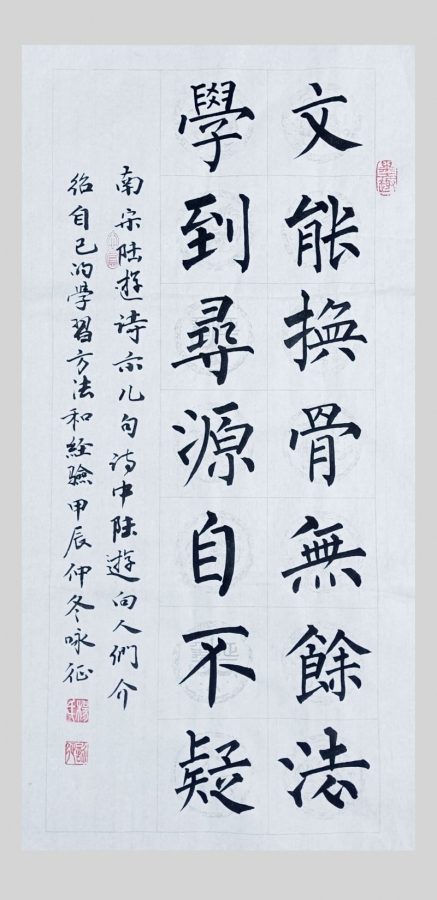 文能換骨無餘法
學到尋源自不疑
南宋陸遊詩示儿句詩中陸遊向人們介
紹自己的學習方法和经驗甲辰仲冬咏征